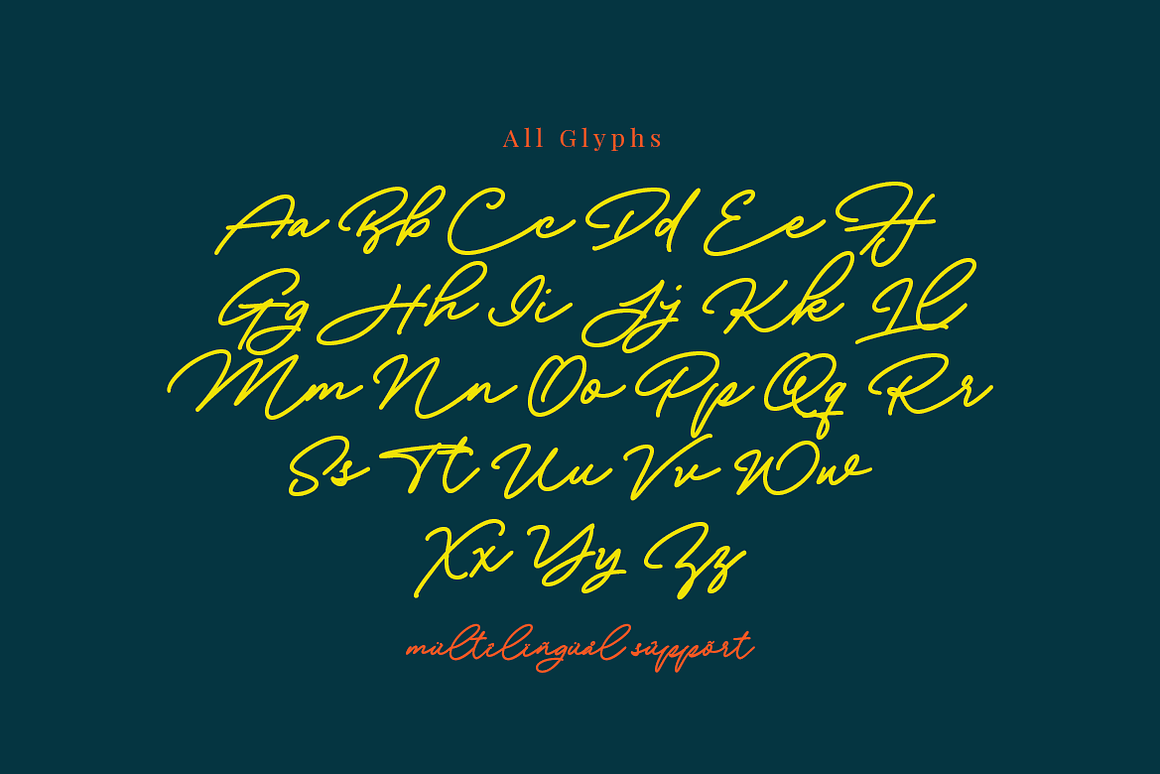 All Glyphs
Aa Bb Cc Dd Ee Ff
Gg Hh Ii Jj Kk Ll
Mm Nn Oo Pp Qq Rr
Ss Tt Uu Vv Ww
Xx Yy Zz
mültîlïñgüál sûppõrt